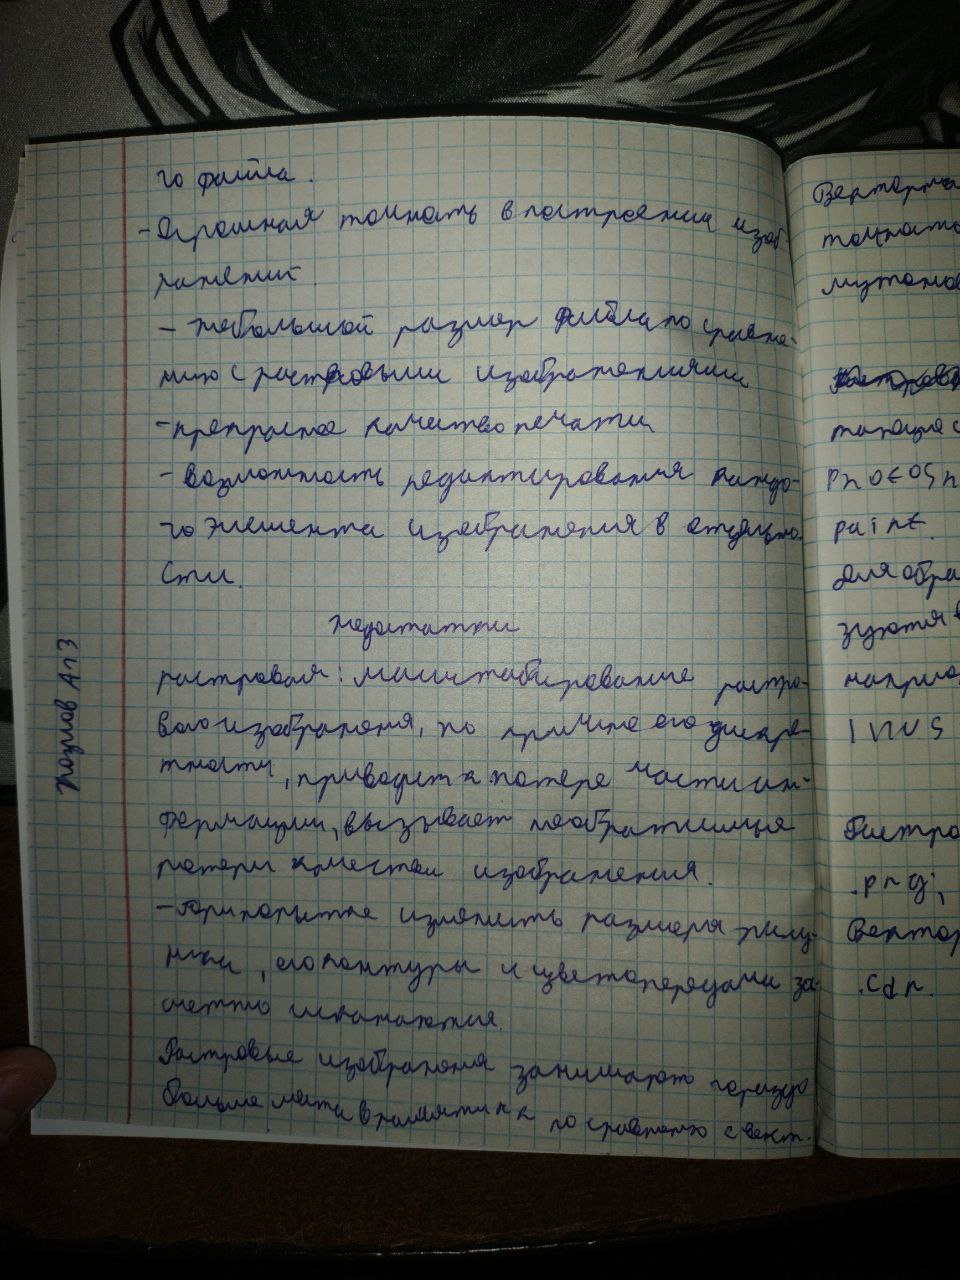 го файла.
- Огромная точность в построении изоб-
ражений.
- небольшой размер файла по сравне-
нию с растровыми изображениями
- прекрасное качество печати
- возможность редактирования каждо-
го элемента изображения в отдельно-
сти.
Недостатки
растровая: масштабирование растро-
вого изображения, по причине его дискре-
тности, приводит к потере части ин-
формации, вызывает необратимые
потери качества изображения.
- При попытке изменить размеры
, его контуры и цветопередача за-
метно искажаются.
Растровые изображения занимают гораздо
больше места в памяти по сравнению с вект.
Козлов АПЗ
Векторна
точность
Растров
paint.
для обра
зуются в
наприм
Растро
.png,
Вектор
.cdr.